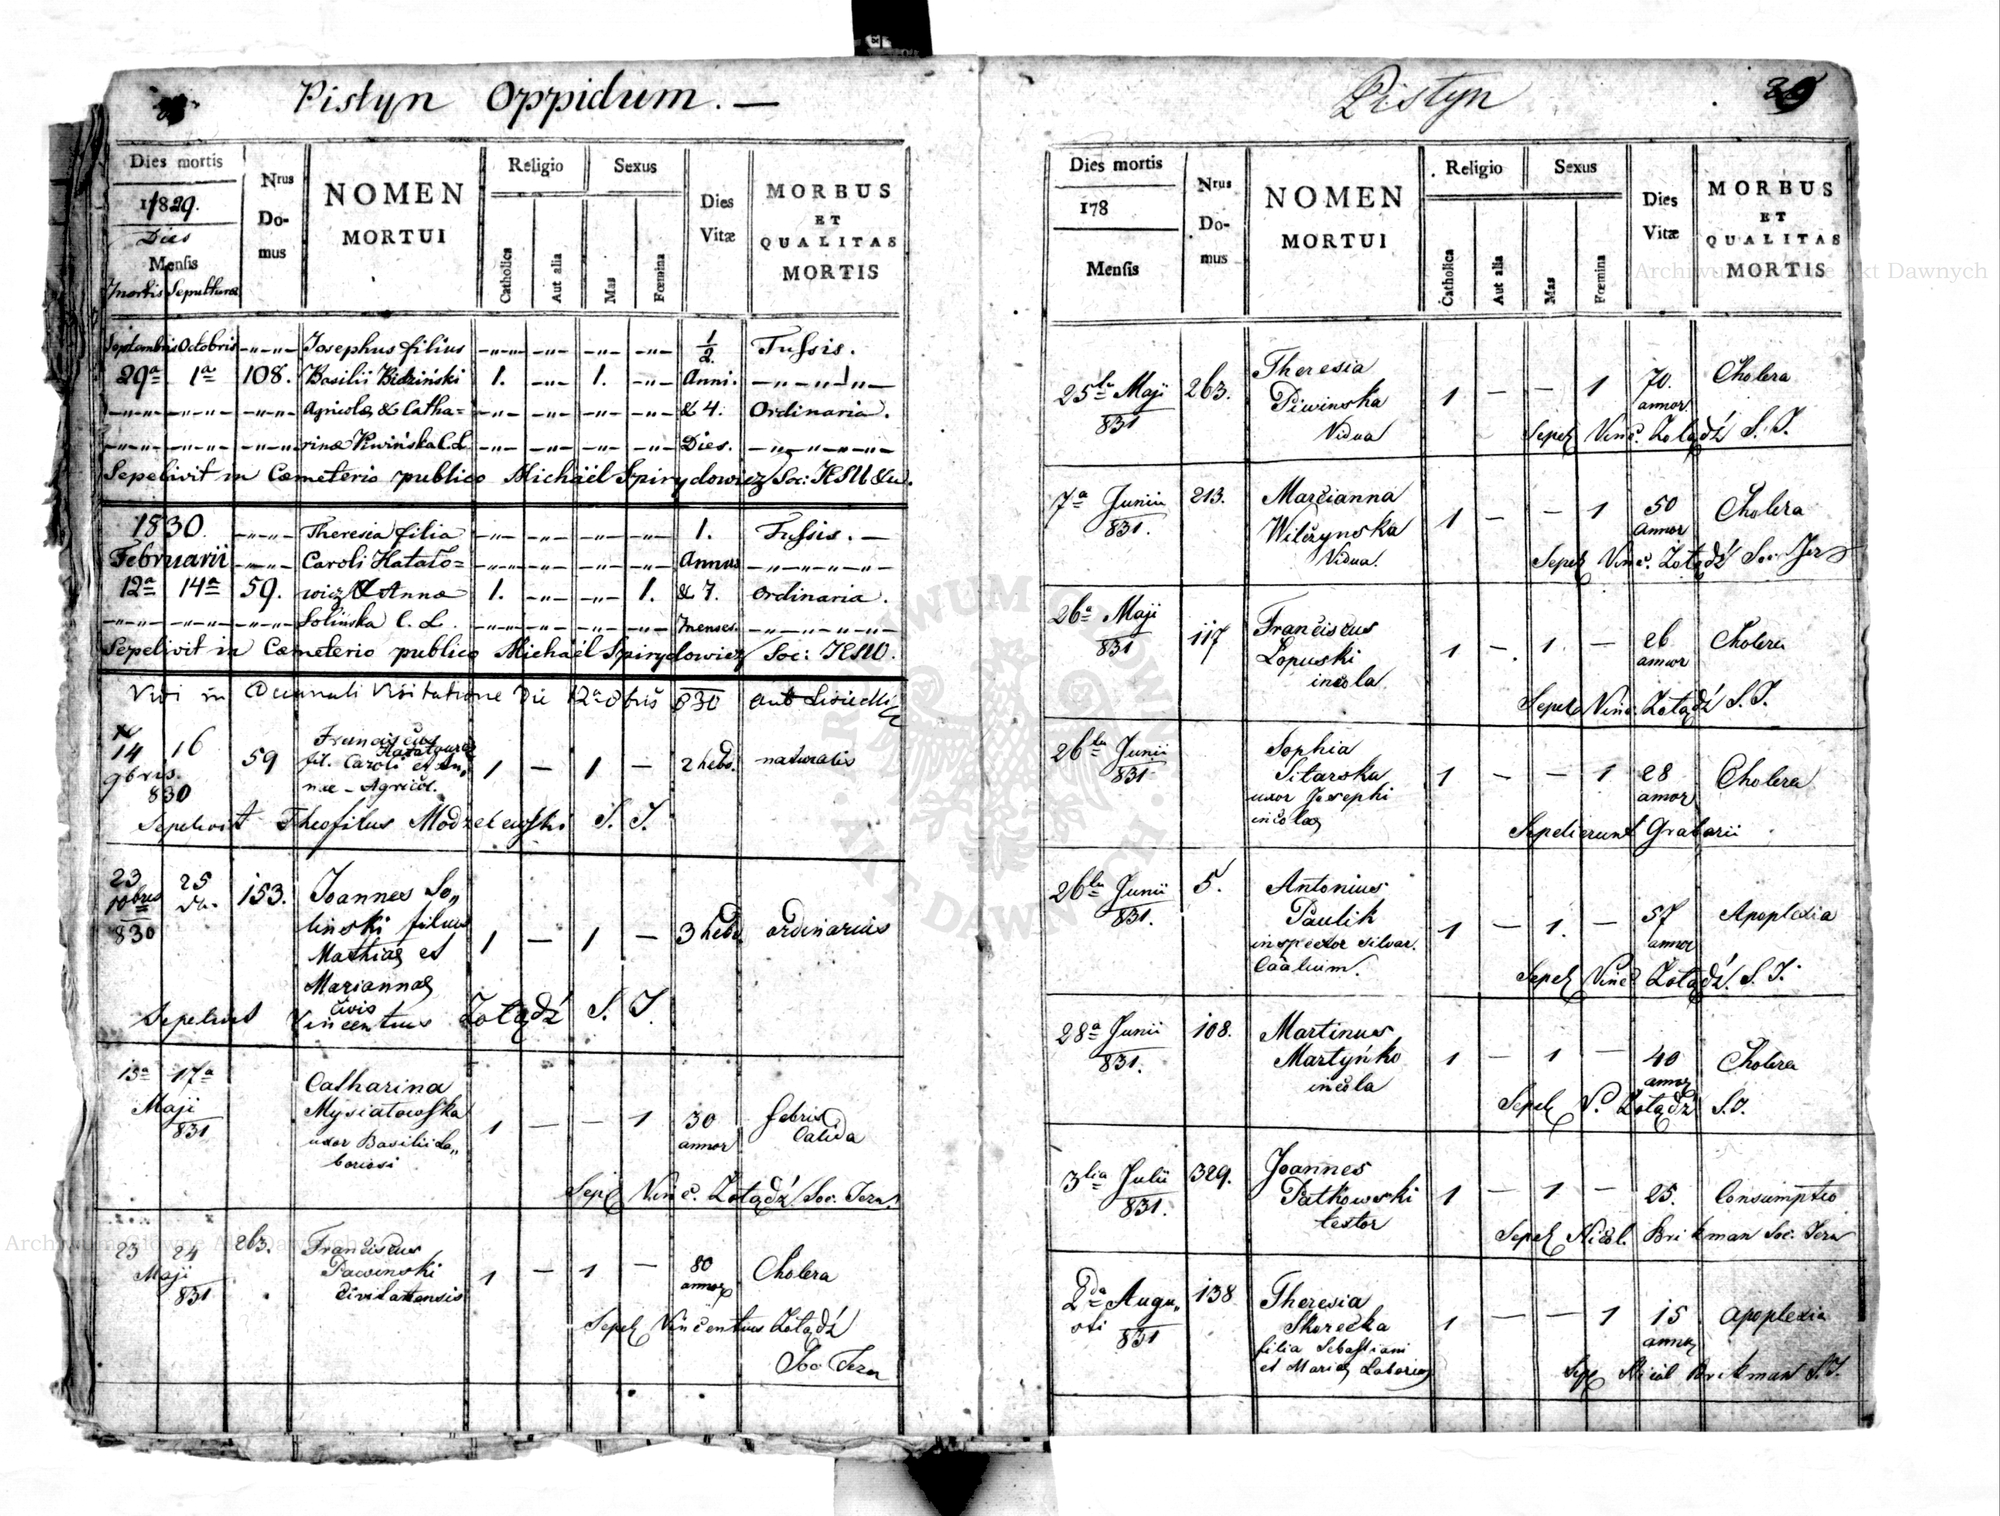 Pistyn Oppidum. —
Dies mortis
1829.
Dies
Mensis
mortis Sepulturæ
Nrus Do- mus
NOMEN
MORTUI
Religio
Catholica
Aut alia
Sexus
Mas
Fœmina
Dies
Vitæ
MORBUS
ET
QUALITAS
MORTIS
Septembris Octobris Josephus filius 1/2 Tussis.
29a 1a 108. Basilii Bidziński 1. 1. Anni.
Agricolæ & Catha= & 4. Ordinaria.
rinæ C. L. Dies.
Sepelivit in Cœmeterio publico Michaël Spirydowicz Soc:
1830. Theresia filia 1. Tussis. —
Februarii Caroli Hatato= Annus
12a 14a 59. wicz & Anna 1. 1. & 7. Ordinaria.
Solińska C. L. menses.
Sepelivit in Cœmeterio publico Michaël Spirydowicz Soc:
Vidi in Decanali Visitatione Die 12a 8bris 830
14 16 59 Franciscus
fil. Caroli et An,
9bris. næ - Agricol. 1 — 1 — 2 hebd. naturalis
830
Sepelivit Theofilus Modzelewski S. J.
23 25 153. Joannes So,,
10bris linski filius 1 — 1 — 3 hebd. ordinarius
830 Mathiæ et
Mariannæ
civis
Sepelivit Vincentius Żołądź S. J.
15a 17a Catharina
Maji Mysiatowska 1 — — 1 30 febris
831 uxor Basilii La,, annor calida
boriosi
Sepel Vinc. Żołądź Soc. Jesu.
23 24 263. Franciscus 80
Maji Pawinski 1 — 1 — annor Cholera
831 Civitatensis
Sepel Vincentius Żołądź
Soc. Jesu
Pistyn
39
Dies mortis
178
Mensis
Nrus Do- mus
NOMEN
MORTUI
Religio
Catholica
Aut alia
Sexus
Mas
Fœmina
Dies
Vitæ
MORBUS
ET
QUALITAS
MORTIS
25ta Maji 263. Theresia 70. Cholera
831 Piwinska 1 — — 1 annor
Vidua
Sepel Vinc. Żołądź S. J.
7a Junii 213. Marcianna 50 Cholera
831. Wilczynska 1 — — 1 annor
Vidua.
Sepel Vinc. Żołądź Soc. Jesu
26a Maji 117 Franciscus 26 Cholera
831 Lopuski 1 — 1. — annor
incola.
Sepel Vinc. Żołądź S. J.
26ta Junii Sophia
831 Sitarska 1 — — 1 28 Cholera
uxor Josephi annor
incolæ
Sepelierunt Grabarii
26ta Junii 5. Antonius
831. Paulik 1 — 1. — 57 Apoplexia
inspector silvar. annor
Caalium.
Sepel Vinc Żołądź S. J.
28a Junii 108. Martinus
831. Martyńko 1 — 1 — 40 Cholera
incola annor
Sepel V. Żołądź S. J.
3tia Julii 329. Joannes
831. Patkowski 1 — 1 — 25. Consumptio
textor
Sepel Nicol. Brikman Soc. Jesu
2da Augu,, 138 Theresia
sti Skurecka 1 — — 1 15 Apoplexia
831 filia Sebastiani annor
et Mariæ Laborios
Sepe Nicol Brikman S. J.
Archiwum Główne Akt Dawnych